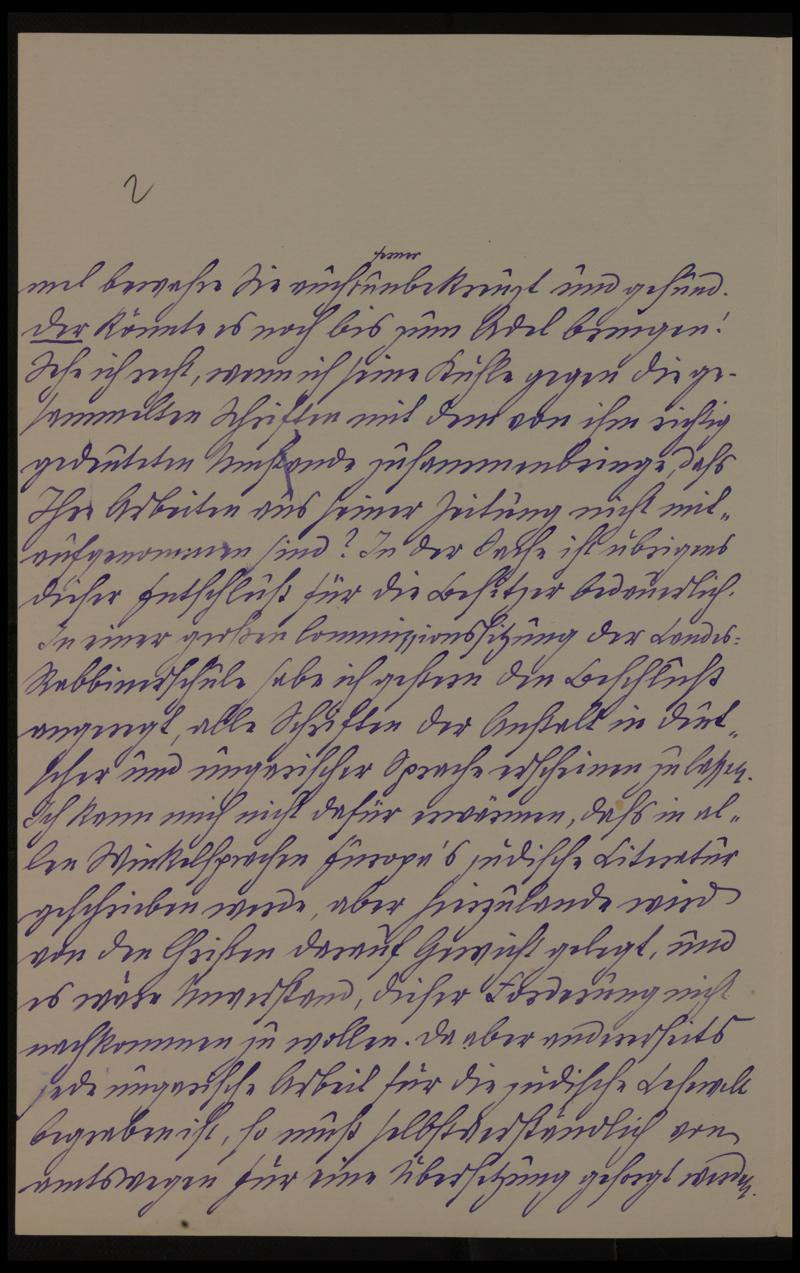 2
ferner
mel bewahre Sie auch unbekreuzt und gesund.
Der könnte es noch bis zum Adel bringen!
Sehe ich recht, wenn ich seine Kühle gegen die ge-
sammelten Schriften mit dem von ihm richtig
gedeuteten Umstande zusammenbringe, dass
Ihre Arbeiten aus seiner Zeitung nicht mit-
aufgenommen sind? In der Sache ist übrigens
dieser Entschluß für die Besitzer bedauerlich.
In einer großen Commissionssitzung der Landes-
Rabbinerschule habe ich gestern den Beschluß
angeregt, alle Schriften der Anstalt in deut-
scher und ungarischer Sprache erscheinen zu lassen.
Ich kann mich nicht dafür erwärmen, dass in al-
len Winkelsprachen Europa's jüdische Literatur
geschrieben werde, aber hierzulande wird
von den Christen darauf Gewicht gelegt, und
es wäre Unverstand, dieser Forderung nicht
nachkommen zu wollen. Da aber andererseits
jede ungarische Arbeit für die jüdische Lesewelt
begraben ist, so muß selbstverständlich von
amtswegen für eine Übersetzung gesorgt werden.